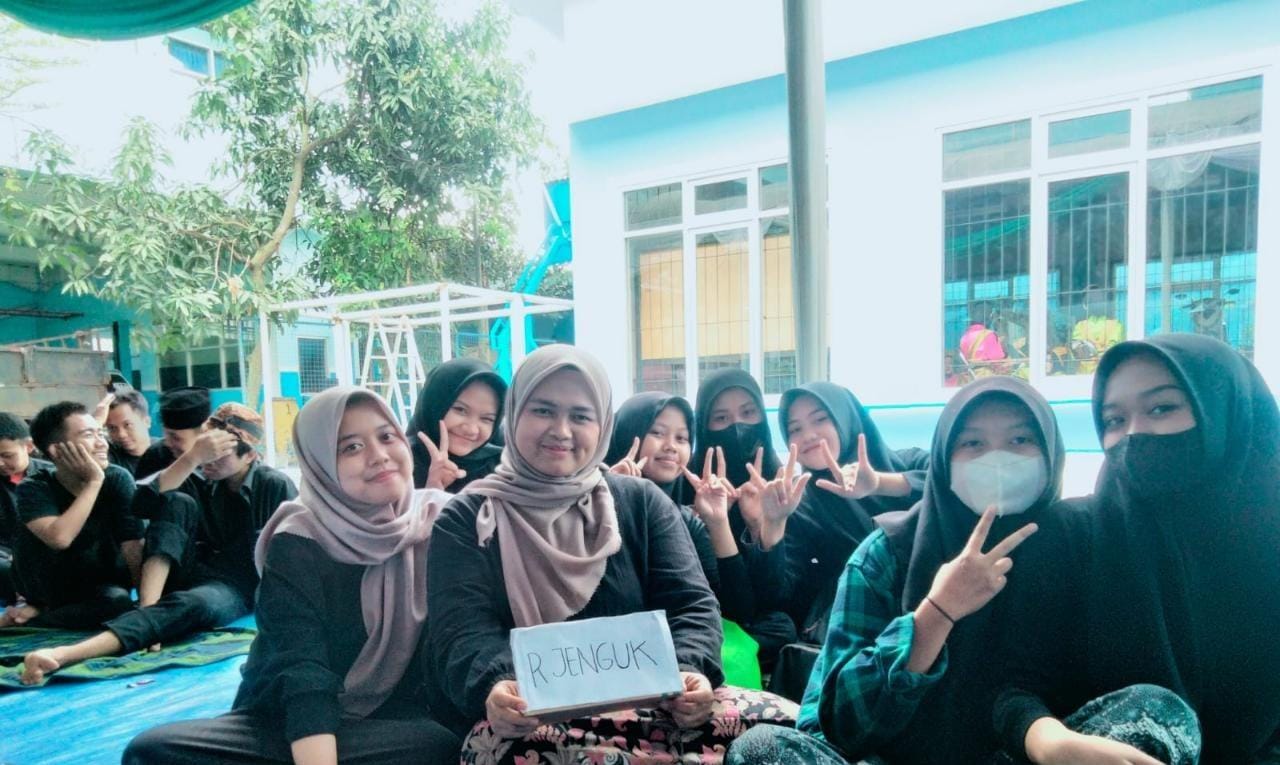 R JENGUK